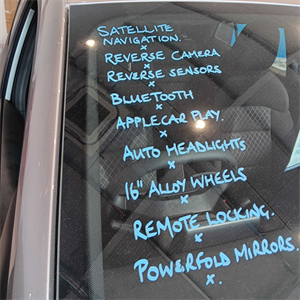 SATELLITE
NAVIGATION.
x
REVERSE CAMERA
x
REVERSE SENSORS
x
BLUETOOTH
x
APPLECAR PLAY.
x
AUTO HEADLIGHTS
x
16" ALLOY WHEELS
x
REMOTE LOCKING.
x
POWERFOLD MIRRORS.
x.